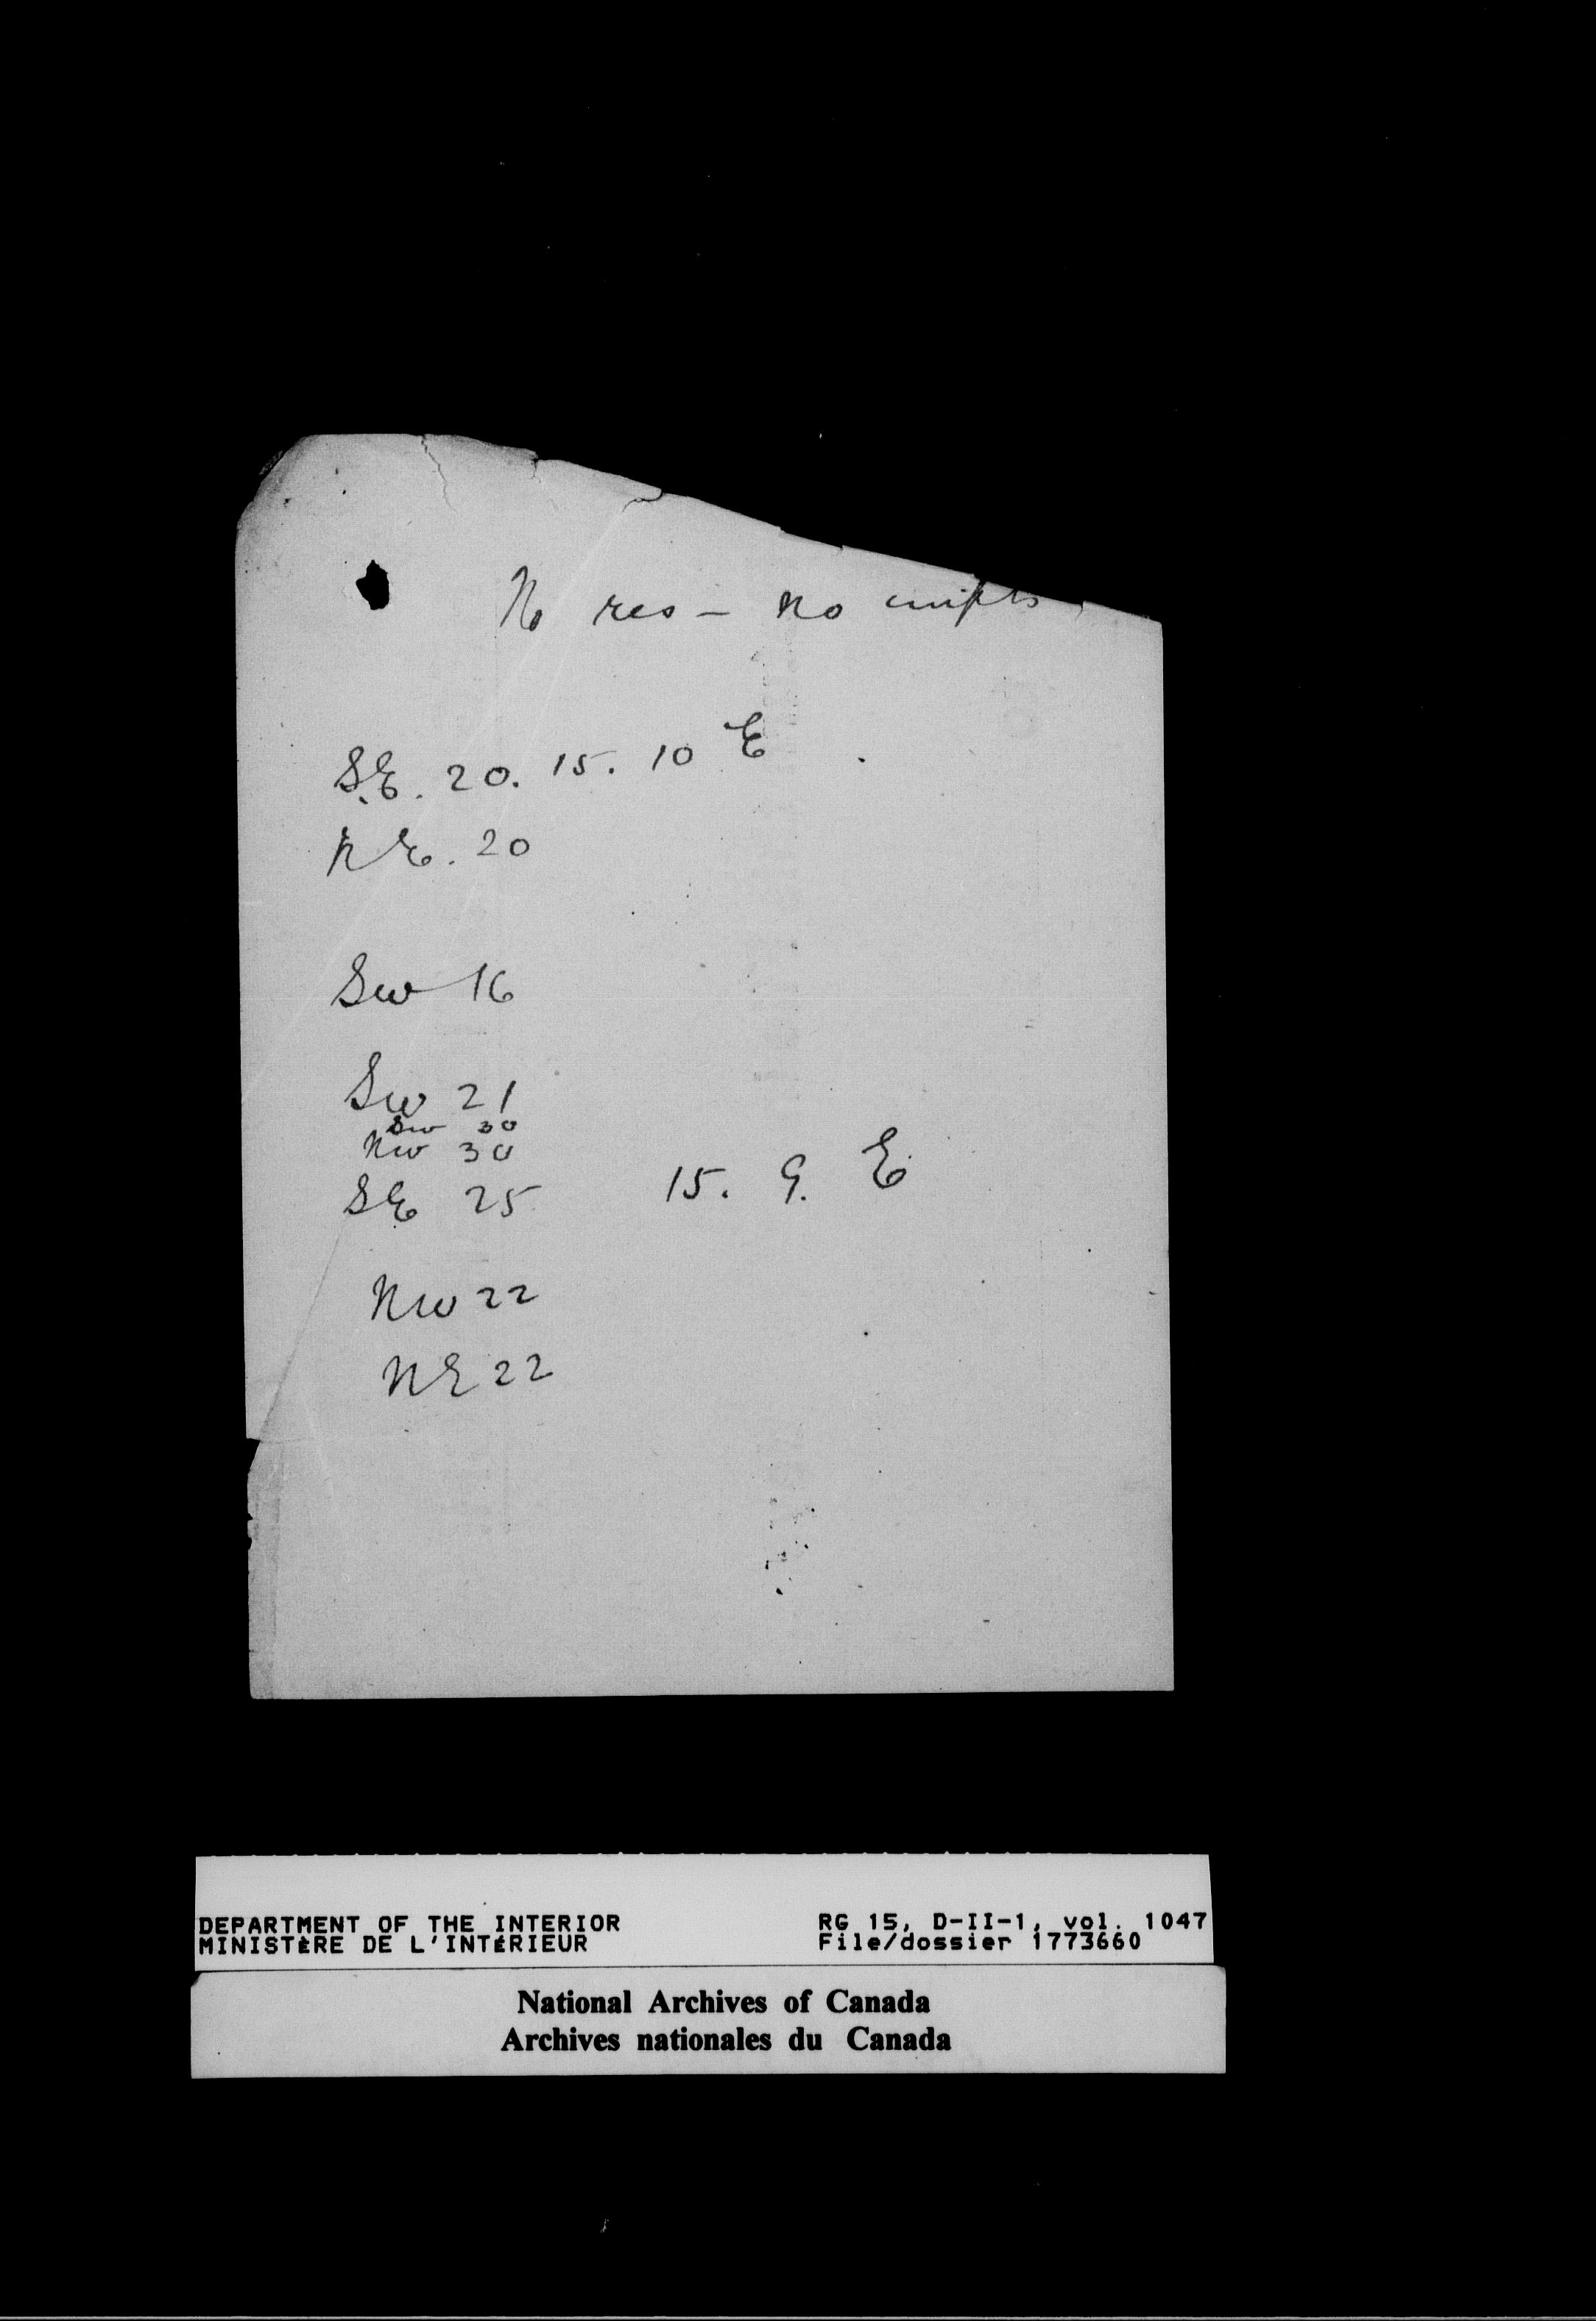 No res — no impts
S.E. 20. 15. 10 E
N E. 20
Sw 16
Sw 21
Sw 30
Nw 30
SE 25 15. 9. E
Nw 22
NE 22
DEPARTMENT OF THE INTERIOR RG 15, D-II-1, vol. 1047
MINISTÈRE DE L'INTÉRIEUR File/dossier 1773660
National Archives of Canada
Archives nationales du Canada